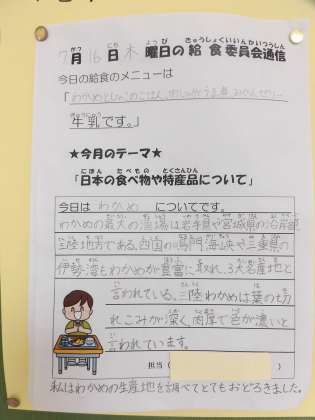 7月16日木曜日の給食委員会通信
今日の給食のメニューは
「わかめとじゃこのごはん、
牛乳です。」
★今月のテーマ★
「日本の食べ物や特産品について」
今日は わかめ についてです。
わかめの最大の漁場は岩手県や宮城県の沿岸部
三陸地方である。四国の鳴門海峡や三重県の
伊勢湾もわかめが豊富に取れ、3大名産地と
言われている。三陸わかめは葉の切
れこみが深く、肉厚で色が濃いと
言われています。
担当(
私はわかめの生産地を調べてとてもおどろきました。